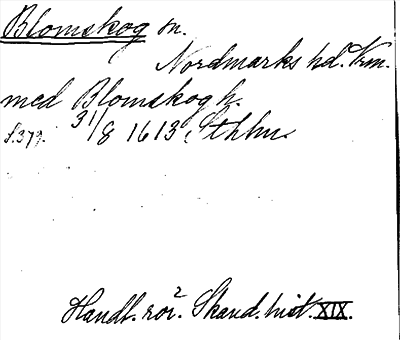 Blomskog sn.
Nordmarks hd. Vrm.
med Blomskog h.
s. 379. 31/8 1613, Sthlm.
Handl. rör. Skand. hist. XIX.